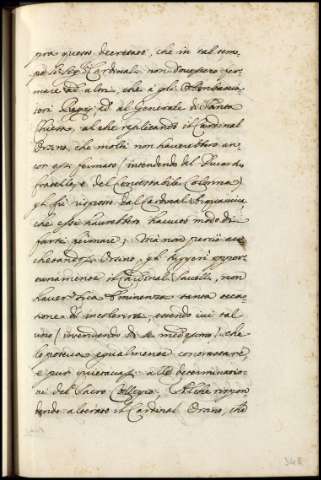 pra questo decretato, che in tal tem-
po li SS.ri Cardinali non dovessero fer-
mare ad altri, che à gli Ambascia-
tori Regij, et al Generale di Santa
Chiesa, al che replicando il Cardinal
Orsino, che molti non haurebbero an-
cor essi fermato (intendendo del Duca
fratello, e del Contestabile Colonna)
gli fù risposto dal Cardinal
che essi haurebbero havuto modo di
farsi stimare; Mà non perciò ac-
chetandosi Orsino, gli suggerì oppor-
tunamente il Cardinal Savelli, non
haver Sua Eminenza tanta occa-
sione di dolersi, essendo ivi tal
uno (intendendo di se medesimo) che
lo poteva egualmente contrastare,
e pur quietavasi alle determinatio-
ni del Sacro Collegio. Al che rispon-
dendo alterato il Cardinal Orsino, che
348